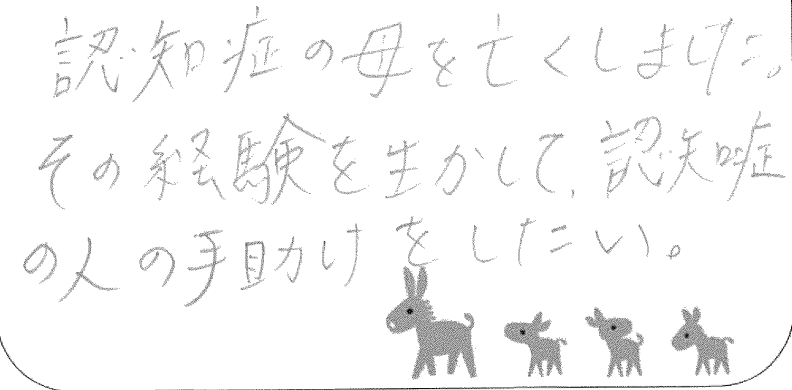 認知症の母を亡くしました。
その経験を生かして、認知症
の人の手助けをしたい。